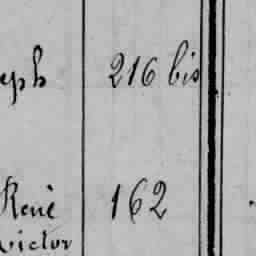 eph 216 bis
René 162
victor